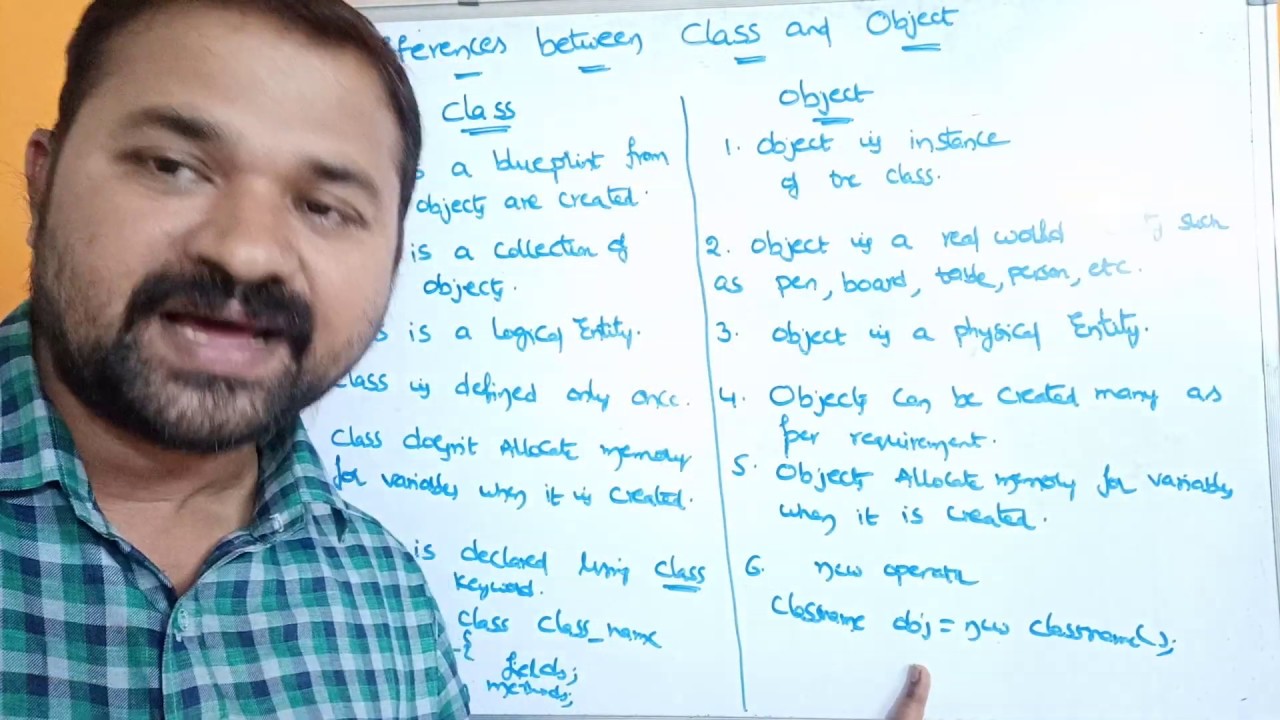 ferences between Class and Object
Class
a blueprint from
objects are created.
is a collection of
objects.
is a Logical Entity.
class is defined only once.
Class doesn't Allocate memory
for variables when it is created.
is declared using class
keyword.
class class_name
{
fields;
methods;
Object
1. object is instance
of the class.
2. object is a real world such
as pen, board, table, person, etc.
3. object is a physical Entity.
4. Objects can be created many as
per requirement.
5. Objects Allocate memory for variables
when it is created.
6. new operator
Classname obj = new classname();